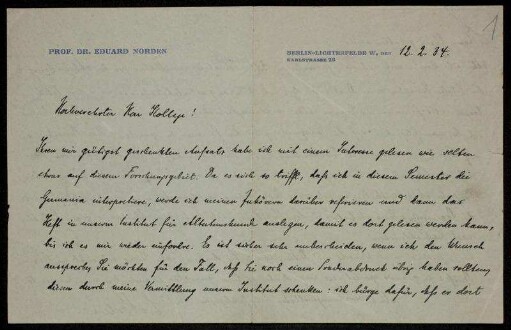 PROF. DR. EDUARD NORDEN
BERLIN-LICHTERFELDE W, DEN 12. 2. 34.
KARLSTRASSE 26
1
Hochverehrter Herr Kollege!
Ihren mir gütigst geschenkten Aufsatz habe ich mit einem Interesse gelesen wie selten
etwas auf diesem Forschungsgebiet. Da es sich so trifft, daß ich in diesem Semester die
Germania interpretiere, werde ich meinen Zuhörern darüber referieren und dann das
Heft in unserm Institut für Altertumskunde auslegen, damit es dort gelesen werden kann,
bis ich es mir wieder einfordre. Es ist sicher sehr unbescheiden, wenn ich den Wunsch
ausspreche Sie möchten für den Fall, daß Sie noch einen Sonderabdruck übrig haben sollten,
diesen durch meine Vermittlung unserm Institut schenken: ich bürge dafür, daß er dort